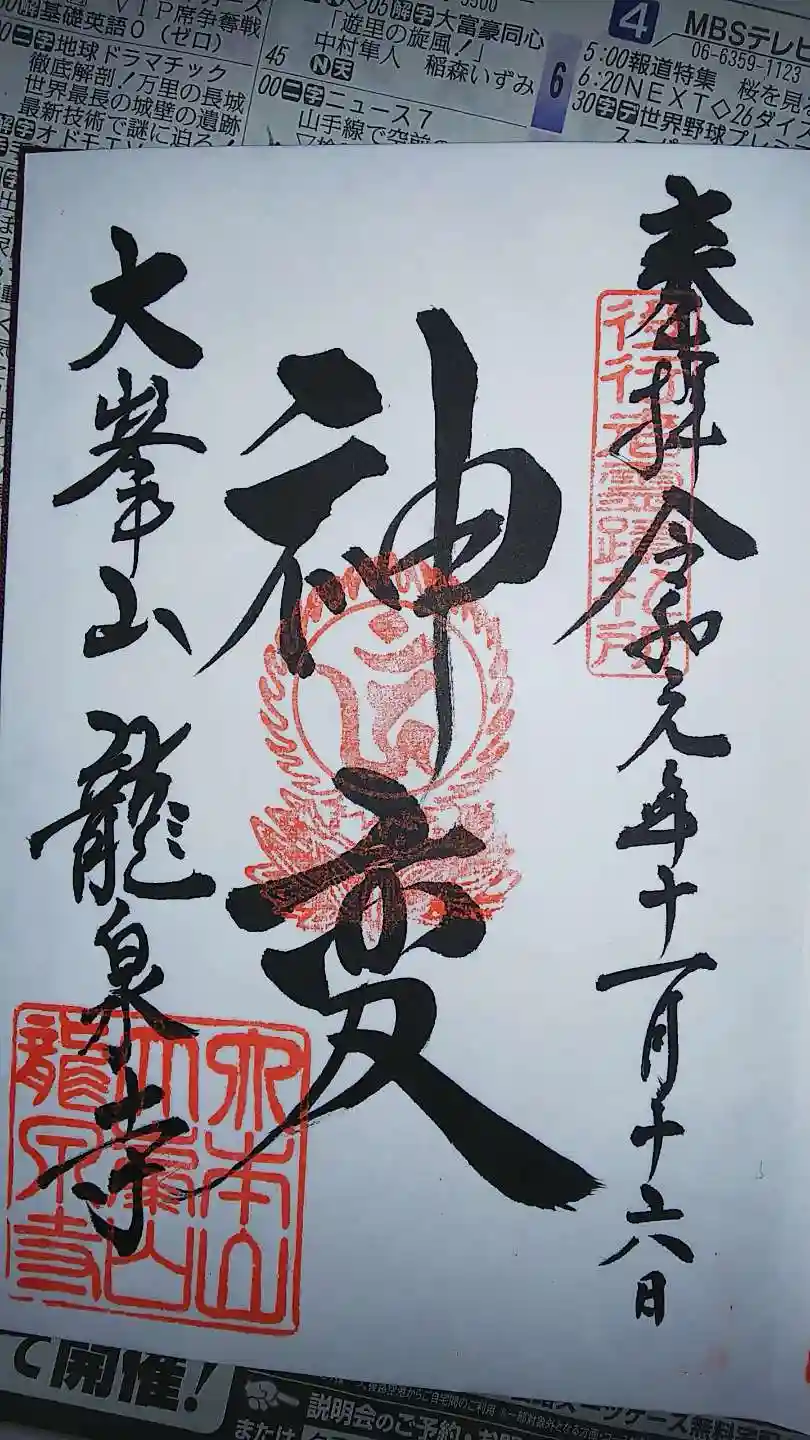 VIP席争奪戦
解基礎英語0(ゼロ)
二字地球ドラマチック
徹底解剖!万里の長城
世界最長の城壁の遺跡
最新技術で謎に迫る!
05解字大富豪同心
「遊里の旋風!」
中村隼人 稲森いずみ
45 N天
00二字ニュース7
6
4 MBSテレビ
06-6359-1123
5:00報道特集 桜を見
6:20NEXT◇26ダイ
30字デ世界野球プレミ
奉拝 令和元年十一月十六日
役行者霊蹟札所
神変
大峯山 龍泉寺
大本山
大峯山
龍泉寺
て開催!
説明会のご予約・お問
または